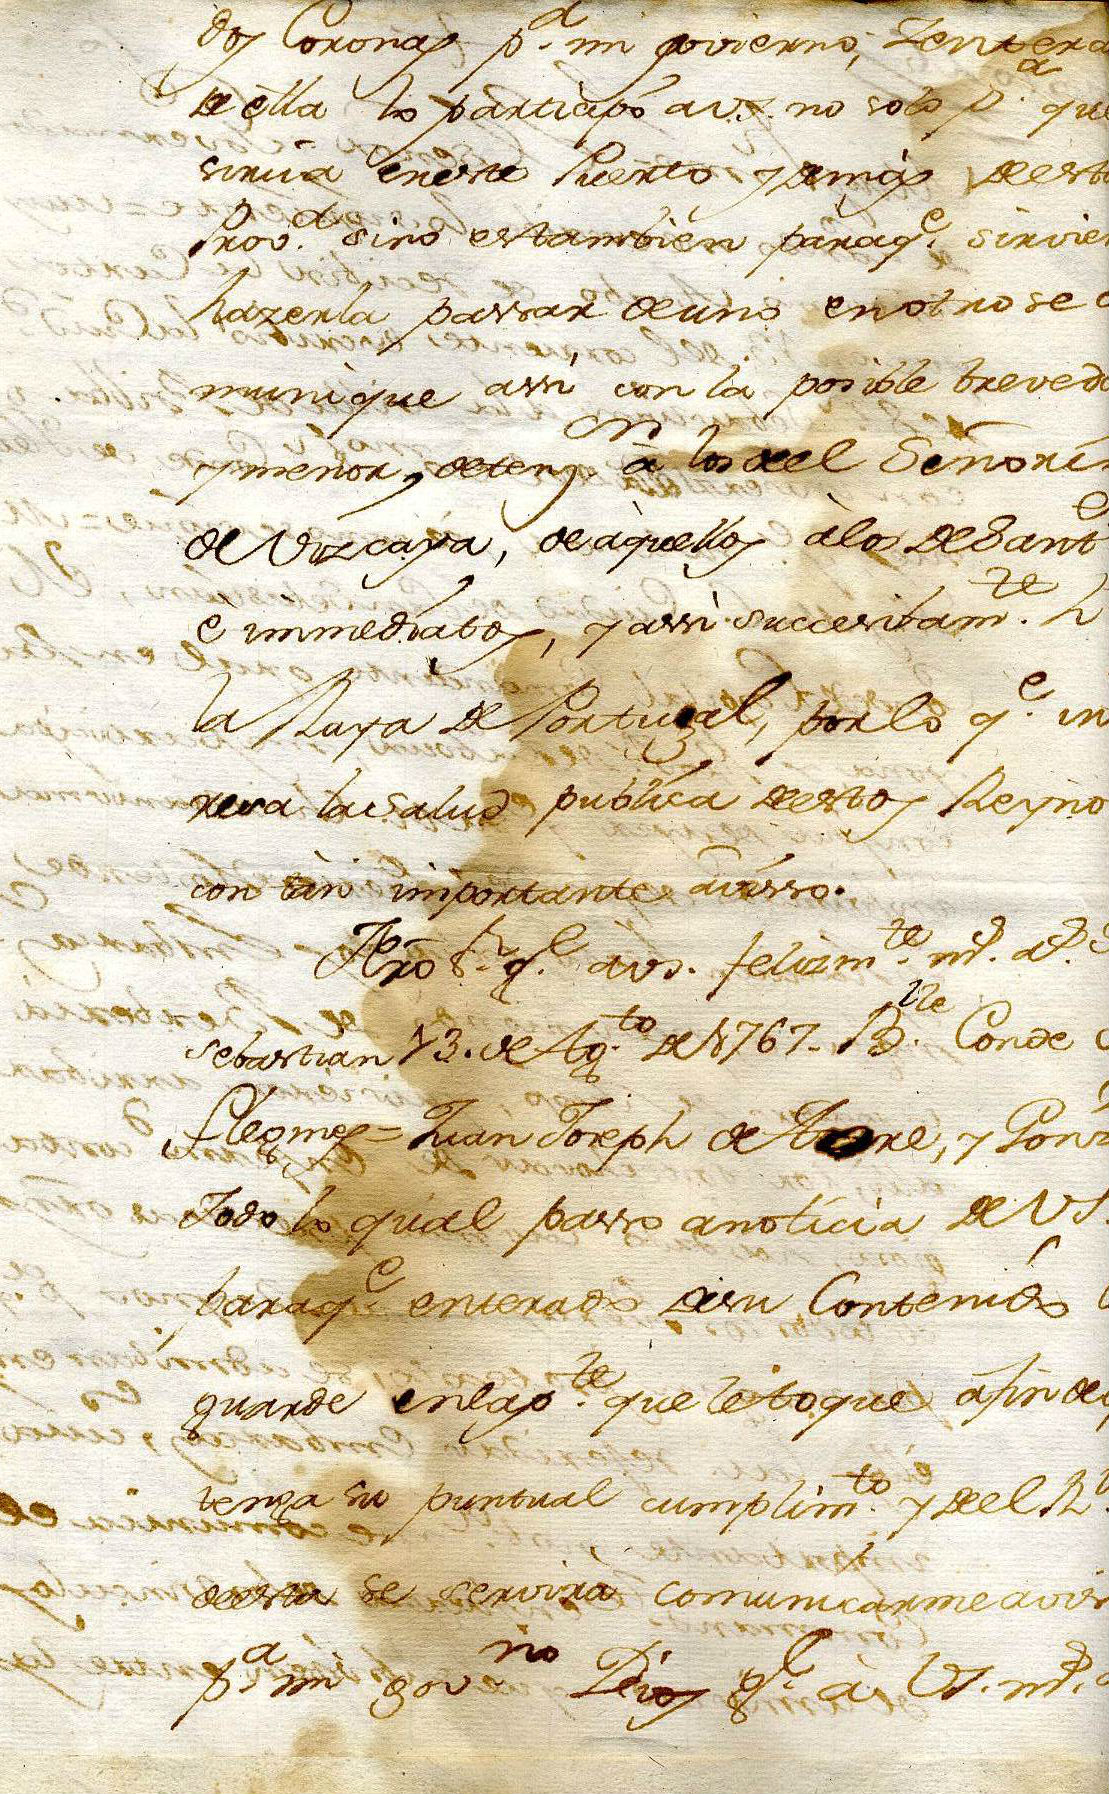 dos Coronas pª. mi govierno, yenter
de ella lo participo a v.s. no solo pª. que
sirva en este Puerto, y demas de esta
Provª. sino es tambien paraqᵉ. sirvie
hazerla passar de uno en otro se
munique assi con la posible breveda
y menor, deteⁿᶜⁿ a los del Señori
de Vizcaya, de aquellos à los de Santᵉ
è immediatos, y assi succesibamᵗᵉ. h
la Raya de Portugal, por lo qᵉ. in
resa la salud publica de estos Reyno
con tàn importante àvisso.
Nrõ Sʳ. gᵉ. a v.s. felizmᵗᵉ. mˢ. aˢ. S
sebastian 13. de Agᵗᵒ de 1767- B. Conde
flegnies = Juan Joseph de, y Gonz
Todo lo qual passo a noticia de VS.
paraqᵉ enterado de su Contenido
guarde en la pᵗᵉ. que le toque à fin de q
tenga su puntual cumplimᵗᵒ. y del R
de esta se servira comunicarme avis
pª. mi govⁿᵒ Dios gᵉ. à VS. mˢ.